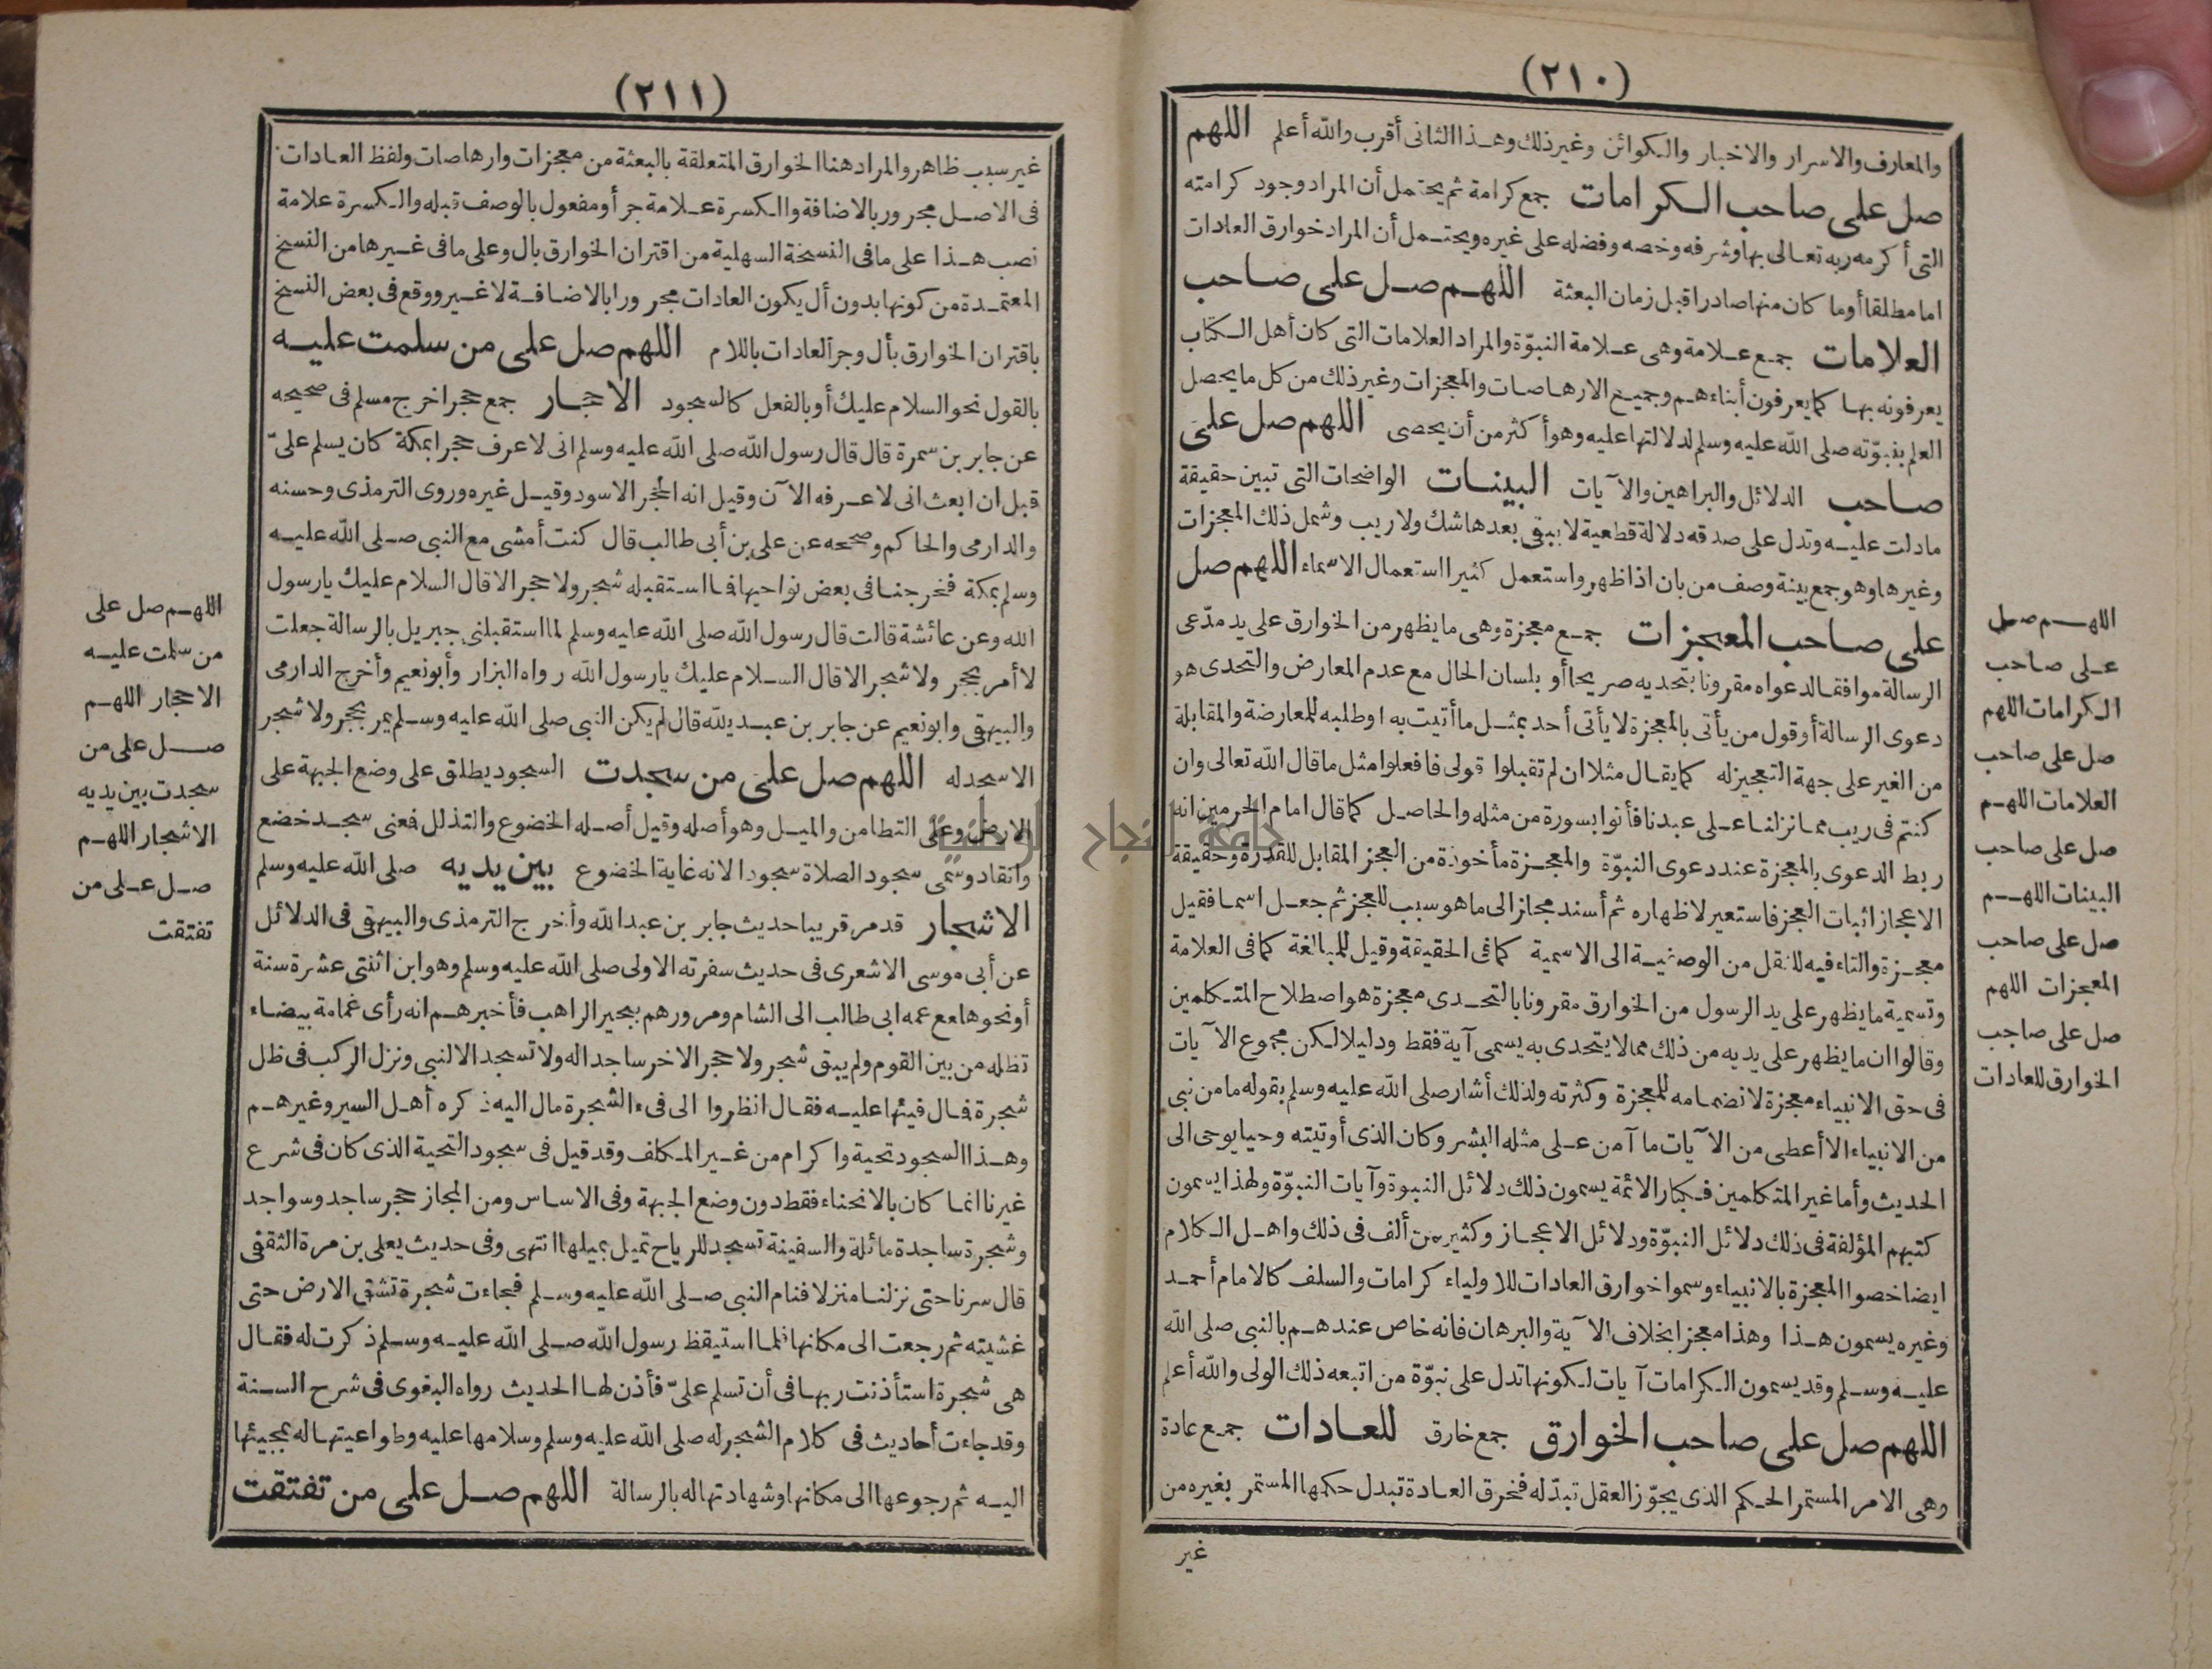 (٢١٠)
والمعارف والاسرار والاخبار والكوائن وغيرذلك وهذا الثانى أقرب والله أعلم اللهم
صل على صاحب الكرامات جمع كرامة ثم يحتمل أن المراد وجود كرامته
التى أكرمه ربه تعالى بها وشرفه وخصه وفضله على غيره ويحتمل أن المراد خوارق العادات
اما مطلقا أو ما كان منها صادرا قبل زمان البعثة اللهم صل على صاحب
العلامات جمع علامة وهى علامة النبوّة والمراد العلامات التى كان أهل الكتاب
يعرفونه بها كما يعرفون أبناءهم وجميع الارهاصات والمعجزات وغيرذلك من كل ما يحصل
العلم بنبوّته صلى الله عليه وسلم لدلالتها عليه وهو أكثر من أن يحصى اللهم صل على
صاحب الدلائل والبراهين والآيات البينات الواضحات التى تبين حقيقة
مادلت عليه وتدل على صدقه دلالة قطعية لا يبقى بعدها شك ولا ريب وشمل ذلك المعجزات
وغيرها وهو جمع بينة وصف من بان اذا ظهر واستعمل كثيرا استعمال الاسماء اللهم صل
على صاحب المعجزات جمع معجزة وهى ما يظهر من الخوارق على يد مدّعى
الرسالة موافقا لدعواه مقرونا بتحديه صريحا أو بلسان الحال مع عدم المعارض والتحدى هو
دعوى الرسالة أو قول من يأتى بالمعجزة لا يأتى أحد بمثل ما أتيت به او طلبه للمعارضة والمقابلة
من الغير على جهة التعجيز له كما يقال مثلا ان لم تقبلوا قولى فافعلوا مثل ما قال الله تعالى وان
كنتم فى ريب مما نزلنا على عبدنا فأتوا بسورة من مثله والحاصل كما قال امام الحرمين انه
ربط الدعوى بالمعجزة عند دعوى النبوّة والمعجزة مأخوذة من العجز المقابل للقدرة وحقيقة
الاعجاز اثبات العجز فاستعير لاظهاره ثم أسند مجازا الى ما هو سبب للعجز ثم جعل اسما فقيل
معجزة والتاء فيه للنقل من الوصفية الى الاسمية كما فى الحقيقة وقيل للمبالغة كما فى العلامة
وتسمية ما يظهر على يد الرسول من الخوارق مقرونا بالتحدى معجزة هو اصطلاح المتكلمين
وقالوا ان ما يظهر على يديه من ذلك مما لا يتحدى به يسمى آية فقط ودليلا لكن مجموع الآيات
فى حق الانبياء معجزة لانضمامه للمعجزة وكثرته ولذلك أشار صلى الله عليه وسلم بقوله ما من نبى
من الانبياء الا أعطى من الآيات ما آمن على مثله البشر وكان الذى أوتيته وحيا يوحى الى
الحديث وأما غير المتكلمين فكبار الائمة يسمون ذلك دلائل النبوة وآيات النبوّة ولهذا يسمون
كتبهم المؤلفة فى ذلك دلائل النبوّة ودلائل الاعجاز وكثير من ألف فى ذلك واهل الكلام
ايضا خصوا المعجزة بالانبياء وسموا خوارق العادات للاولياء كرامات والسلف كالامام أحمد
وغيره يسمون هذا وهذا معجزا بخلاف الآية والبرهان فانه خاص عندهم بالنبى صلى الله
عليه وسلم وقد يسمون الكرامات آيات لكونها تدل على نبوّة من اتبعه ذلك الولى والله أعلم
اللهم صل على صاحب الخوارق جمع خارق للعادات جمع عادة
وهى الامر المستمر الحكم الذى يجوّز العقل تبدّله فخرق العادة تبدل حكمها المستمر بغيره من
غير
اللهم صل
على صاحب
الكرامات اللهم
صل على صاحب
العلامات اللهم
صل على صاحب
البينات اللهم
صل على صاحب
المعجزات اللهم
صل على صاحب
الخوارق للعادات
(٢١١)
غير سبب ظاهر والمراد هنا الخوارق المتعلقة بالبعثة من معجزات وارهاصات ولفظ العادات
فى الاصل مجرور بالاضافة والكسرة علامة جر أو مفعول بالوصف قبله والكسرة علامة
نصب هذا على ما فى النسخة السهلية من اقتران الخوارق بال وعلى ما فى غيرها من النسخ
المعتمدة من كونها بدون أل يكون العادات مجرورا بالاضافة لا غير ووقع فى بعض النسخ
باقتران الخوارق بأل وجر العادات باللام اللهم صل على من سلمت عليه
بالقول نحو السلام عليك أو بالفعل كالسجود الاحجار جمع حجر اخرج مسلم فى صحيحه
عن جابر بن سمرة قال قال رسول الله صلى الله عليه وسلم انى لاعرف حجرا بمكة كان يسلم علىّ
قبل ان ابعث انى لاعرفه الآن وقيل انه الحجر الاسود وقيل غيره وروى الترمذى وحسنه
والدارمى والحاكم وصححه عن على بن أبى طالب قال كنت أمشى مع النبى صلى الله عليه
وسلم بمكة فخرجنا فى بعض نواحيها فما استقبله شجر ولا حجر الا قال السلام عليك يارسول
الله وعن عائشة قالت قال رسول الله صلى الله عليه وسلم لما استقبلنى جبريل بالرسالة جعلت
لا أمر بحجر ولا شجر الا قال السلام عليك يارسول الله رواه البزار وأبونعيم وأخرج الدارمى
والبيهقى وابونعيم عن جابر بن عبد يلله قال لم يكن النبى صلى الله عليه وسلم يمر بحجر ولا شجر
الا سجد له اللهم صل على من سجدت السجود يطلق على وضع الجبهة على
الارض وعلى التطامن والميل وهو أصله وقيل أصله الخضوع والتذلل فعنى سجد خضع
وانقاد وسمى سجود الصلاة سجودا لانه غاية الخضوع بين يديه صلى الله عليه وسلم
الاشجار قد مر قريبا حديث جابر بن عبد الله وأخرج الترمذى والبيهقى فى الدلائل
عن أبى موسى الاشعرى فى حديث سفرته الاولى صلى الله عليه وسلم وهو ابن اثنتى عشرة سنة
أو نحوها مع عمه ابى طالب الى الشام ومرورهم ببحير الراهب فأخبرهم انه رأى غمامة بيضاء
تظله من بين القوم ولم يبق شجر ولا حجر الا خر ساجدا له ولا تسجد الا لنبى ونزل الركب فى ظل
شجرة فمال فيئها عليه فقال انظروا الى فىء الشجرة مال اليه ذكره أهل السير وغيرهم
وهذا السجود تحية واكرام من غير المكلف وقد قيل فى سجود التحية الذى كان فى شرع
غيرنا انما كان بالانحناء فقط دون وضع الجبهة وفى الاساس ومن المجاز حجر ساجد وسواجد
وشجرة ساجدة مائلة والسفينة تسجد للرياح تميل بميلها انتهى وفى حديث يعلى بن مرة الثقفى
قال سرنا حتى نزلنا منزلا فنام النبى صلى الله عليه وسلم فجاءت شجرة تشق الارض حتى
غشيته ثم رجعت الى مكانها فلما استيقظ رسول الله صلى الله عليه وسلم ذكرت له فقال
هى شجرة استأذنت ربها فى أن تسلم علىّ فأذن لها الحديث رواه البغوى فى شرح السنة
وقد جاءت أحاديث فى كلام الشجر له صلى الله عليه وسلم وسلامها عليه وطواعيتها له بمجيئها
اليه ثم رجوعها الى مكانها وشهادتها له بالرسالة اللهم صل على من تفتقت
اللهم صل على
من سلمت عليه
الاحجار اللهم
صل على من
سجدت بين يديه
الاشجار اللهم
صل على من
تفتقت
جامعة النجاح الوطنية